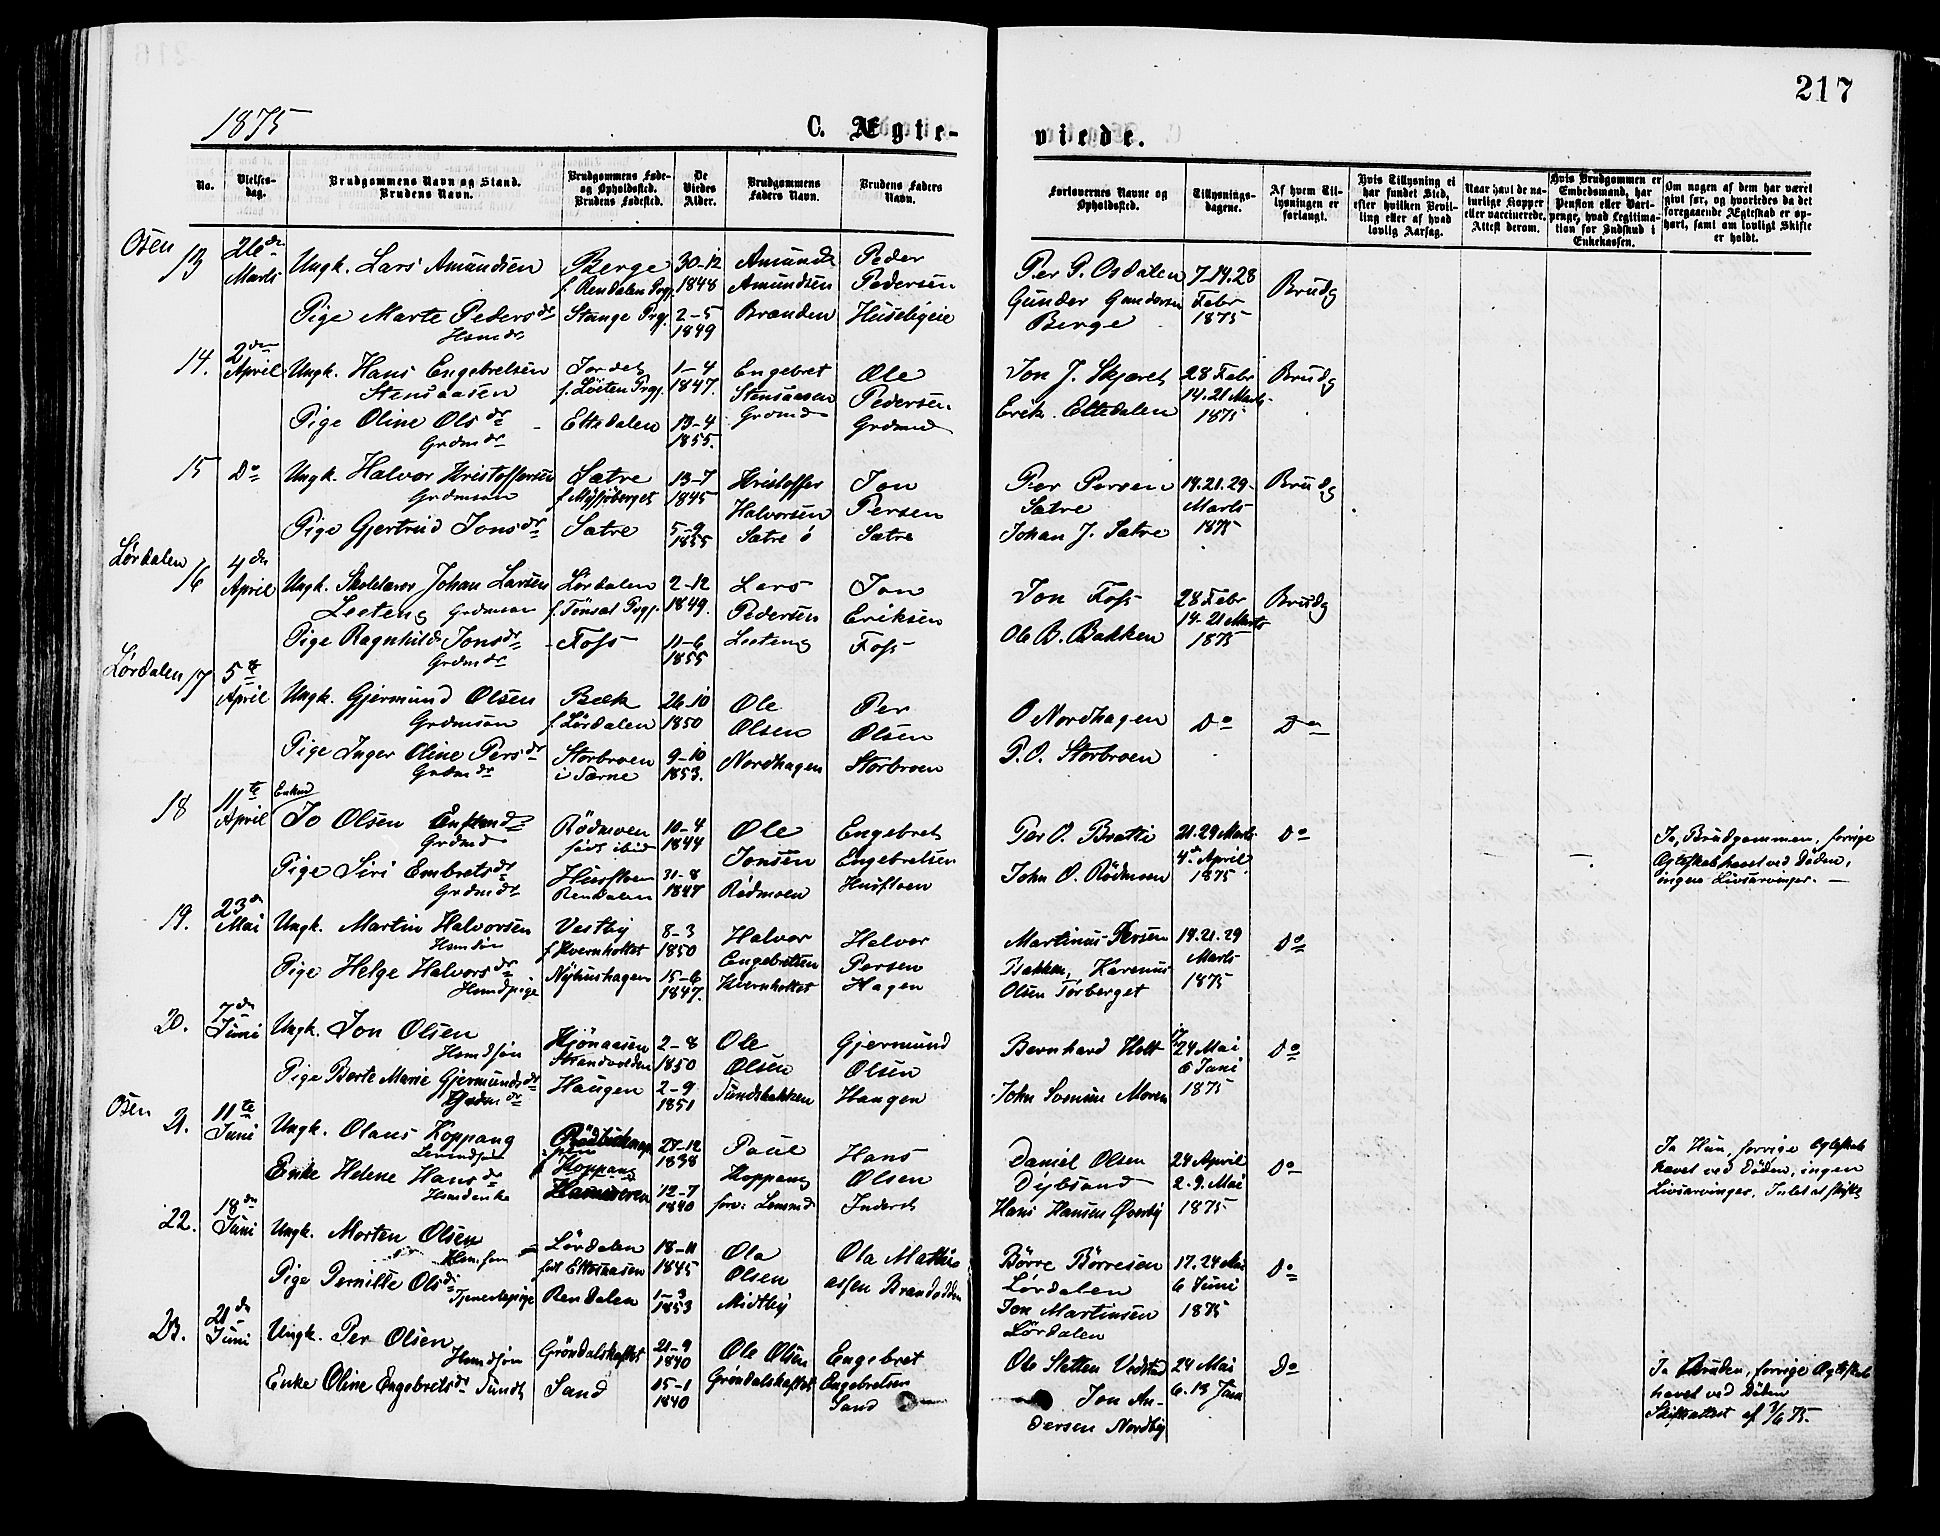 217
1875
C. Ægte-
viede.
No.
Vielses-
dag.
Brudgommens Navn og Stand.
Brudens Navn.
Brudgommens Føde-
og Opholdssted.
Brudens Fødested.
De
Viedes
Alder.
Brudgommens
Faders Navn.
Brudens Faders
Navn.
Forlovernes Navne og
Opholdssted.
Tillysnings-
dagene.
Af hvem Til-
lysningen er
forlangt.
Hvis Tillysning ei
har fundet Sted,
efter hvilken Bevil-
ling eller af hvad
lovlig Aarsag.
Naar havt de na-
turlige Kopper
eller vaccinerede.
Attest derom.
Hvis Brudgommen er
Embedsmand, har
Pension eller Vart-
penge, hvad Legitima-
tion for Indskud i
Enkekassen.
Om nogen af dem har været
gift før, og hvorledes da det
foregaaende Ægteskab er op-
hørt, samt om lovligt Skifte
er holdt.
Osen
13
26de
Marts
Ungk. Lars Amundsen
Pige Marte Pedersdr
Hsmdr
Berge
f. Rendalen Prgj.
Stange Prgj.
30-12
1848
2-5
1849
Amund
Amundsen
Brænden
Peder
Pedersen
Huseligeie
Per P. Osdalen
Gunder Gundersen
Berge
7-14.28
Febr
1875
Brudg
14.
2den
April
Ungk. Hans Engebretsen
Stensaasen
Pige Oline Olsdr
Grdmdr
Jordet
f. Løiten Prgj.
Ettedalen
1-4
1847.
13-4
1855.
Engebret
Stensaasen
Grdmd
Ole
Pedersen
Grdmd
Jon J. Skjæret
Erik Ettedalen
28 Febr
14.21 Marts
1875
Brudg
15
Do
Ungk. Halvor Kristoffersen
Grdmsøn
Pige Gjertrud Jonsdr
Sætre
f. Nysjøberget
Sætre
13-7
1845
5-9
1855
Kristoffer
Halvorsen
Sætre ø
Jon
Persen
Sætre
Per Persen
Sætre
Johan J. Sætre
14.21.29
Marts
1875
Brudg
Lørdalen
16
4de
April
Ungk. Skolelærer Johan Larsen
Leeteng Grdmsøn
Pige Ragnhild Jonsdr
Grdmdr
Lørdalen
f. Tønset Prgj.
Foss
2-12
1849.
11-6
1855
Lars
Pedersen
Leeteng
Jon
Eriksen
Foss
Jon Foss
Ole B. Bakken
28 Febr
14.21 Marts
1875
Brudg
Lørdalen
17
5te
April
Ungk. Gjermund Olsen
Grdmsøn
Pige Inger Oline Persdr
Grdmdr
Bæk
f. Lørdalen
Storbroen
i Særne
26-10
1850
9-10
1853.
Ole
Olsen
Nordhagen
Per
Olsen
Storbroen
O Nordhagen
P. O. Storbroen
Do
Do
18
11te
April
Enkmd
Jo Olsen
Grdmd
Pige Siri Embretsdr
Grdmdr
Rødmoen
født ibid
Husfloen
Rendalen
10-4
1844
31-8
1847
Ole
Jonsen
Rødmoen
Engebret
Engebretsen
Husfloen
Per O. Bratli
John O. Rødmoen
21.29 Marts
4de April
1875
Do
Ja, Brudgommen, forrige
Ægteskab hævet ved Døden,
ingen Livsarvinger. —
19.
23de
Mai
Ungk. Martin Halvorsen
Hsmdsøn
Pige Helge Halvorsdr
Hsmdpige
Vestby
f. Kvernholtet
Nyhushagen
8-3
1850
15-6
1847.
Halvor
Engebretsen
Kvernholtet
Halvor
Persen
Hagen
Martinus Persen
Bakken, Karenus
Olsen Tørberget
14.21.29
Marts
1875
Do
20.
7de
Juni
Ungk. Jon Olsen
Hsmdsøn
Pige Berte Marie Gjermundsdr
Grdmdr
Hjønaasen
Strandvolden
Haugen
2-8
1850
2-9
1851
Ole
Olsen
Sundsbakken
Gjermund
Olsen
Haugen
Bernhard Holt
John Moren
17
24 Mai
6 Juni
1875
Do
Osen
21.
11te
Juni
Ungk. Olaus Koppang
Lensmdsøn
Enke Helene Hansdr
Hsmdenke
f. Koppang
27-12
1838
12-7
1840
Paul
Koppang
forv: Lensmd
Hans
Olsen
Inderst
Daniel Olsen
Dybsand
Hans Hansen Øverby
24 April
2.9. Mai
1875
Do
Ja Hun, forrige Ægteskab
hævet ved Døden, ingen
Livsarvinger, Intet at skifte
22.
18de
Juni
Ungk. Morten Olsen
Hsmsøn
Pige Pernille Olsdr
Tjenestepige
Lørdalen
født Elteraasen
Rendalen
18-11
1845
1-3
1853
Ola
Olsen
Midtby
Ola Mathi-
assen Brandodden
Børre Børresen
Lørdalen
Jon Martinsen
Lørdalen
17.24 Mai
6 Juni
1875
Do
23.
21de
Juni
Ungk. Per Olsen
Hsmdsøn
Enke Oline Engebretsdr Sundt
Grøndalskaftet
Sand
21-9
1840
15-1
1840
Ole Olsen
Grøndalskaftet
Engebret
Engebretsen
Sand
Ole Sletten Vedstad
Jon An-
dersen Nordby
24 Mai
6.13 Juni
Do
Ja Bruden, forrige Ægteskab
hævet ved Døden
Skifteattest af 7/6 75.